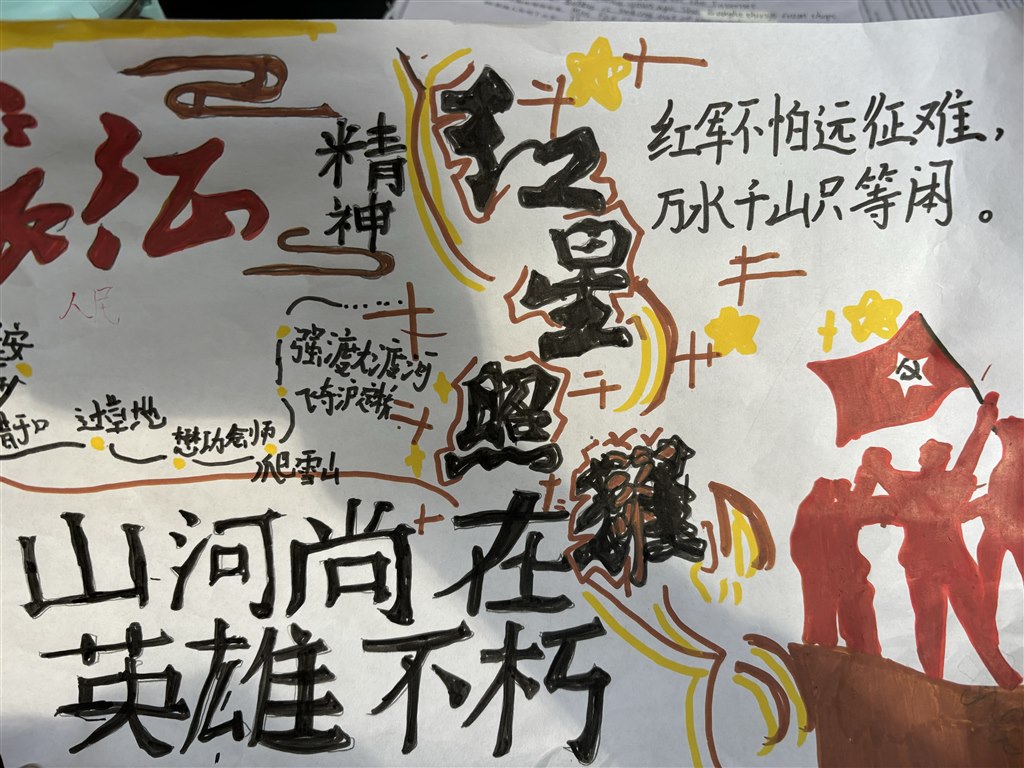 长征
精神
红星照耀
红军不怕远征难，
万水千山只等闲。
人民
强渡大渡河
飞夺泸定桥
过草地
懋功会师
爬雪山
山河尚在
英雄不朽